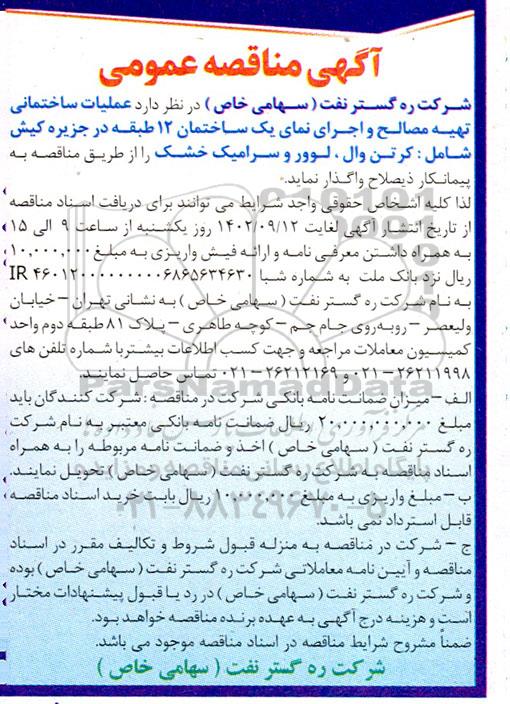 آگهی مناقصه عمومی
شرکت ره گستر نفت ( سهامی خاص ) در نظر دارد عملیات ساختمانی
تهیه مصالح و اجرای نمای یک ساختمان ۱۲ طبقه در جزیره کیش
شامل : کرتن وال ، لوور و سرامیک خشک را از طریق مناقصه به
پیمانکار ذیصلاح واگذار نماید.
لذا کلیه اشخاص حقوقی واجد شرایط می توانند برای دریافت اسناد مناقصه
از تاریخ انتشار آگهی لغایت ۱۴۰۲/۰۹/۱۲ روز یکشنبه از ساعت ۹ الی ۱۵
به همراه داشتن معرفی نامه و ارائه فیش واریزی به مبلغ ۱۰,۰۰۰,۰۰۰
ریال نزد بانک ملت به شماره شبا IR ۴۶۰۱۲۰۰۰۰۰۰۰۰۰۶۸۶۵۶۳۴۶۳۰
به نام شرکت ره گستر نفت ( سهامی خاص ) به نشانی تهران – خیابان
ولیعصر – روبه روی جام جم – کوچه طاهری – پلاک ۸۱ طبقه دوم واحد
کمیسیون معاملات مراجعه و جهت کسب اطلاعات بیشتر با شماره تلفن های
۲۶۲۱۱۹۹۸-۰۲۱ و ۲۶۲۱۲۱۶۹-۰۲۱ تماس حاصل نمایند.
الف – میزان ضمانت نامه بانکی شرکت در مناقصه : شرکت کنندگان باید
مبلغ ۲۰,۰۰۰,۰۰۰,۰۰۰ ریال ضمانت نامه بانکی معتبر به نام شرکت
ره گستر نفت ( سهامی خاص ) اخذ و ضمانت نامه مربوطه را به همراه
اسناد مناقصه به شرکت ره گستر نفت ( سهامی خاص ) تحویل نمایند.
ب – مبلغ واریزی به مبلغ ۱۰,۰۰۰,۰۰۰ ریال بابت خرید اسناد مناقصه
قابل استرداد نمی باشد.
ج – شرکت در مناقصه به منزله قبول شروط و تکالیف مقرر در اسناد
مناقصه و آیین نامه معاملاتی شرکت ره گستر نفت ( سهامی خاص ) بوده
و شرکت ره گستر نفت ( سهامی خاص ) در رد یا قبول پیشنهادات مختار
است و هزینه درج آگهی به عهده برنده مناقصه خواهد بود.
ضمناً مشروح شرایط مناقصه در اسناد مناقصه موجود می باشد.
شرکت ره گستر نفت ( سهامی خاص )
ParsNamadData
۰۲۱-۸۸۳۴۹۶۷۰-۵